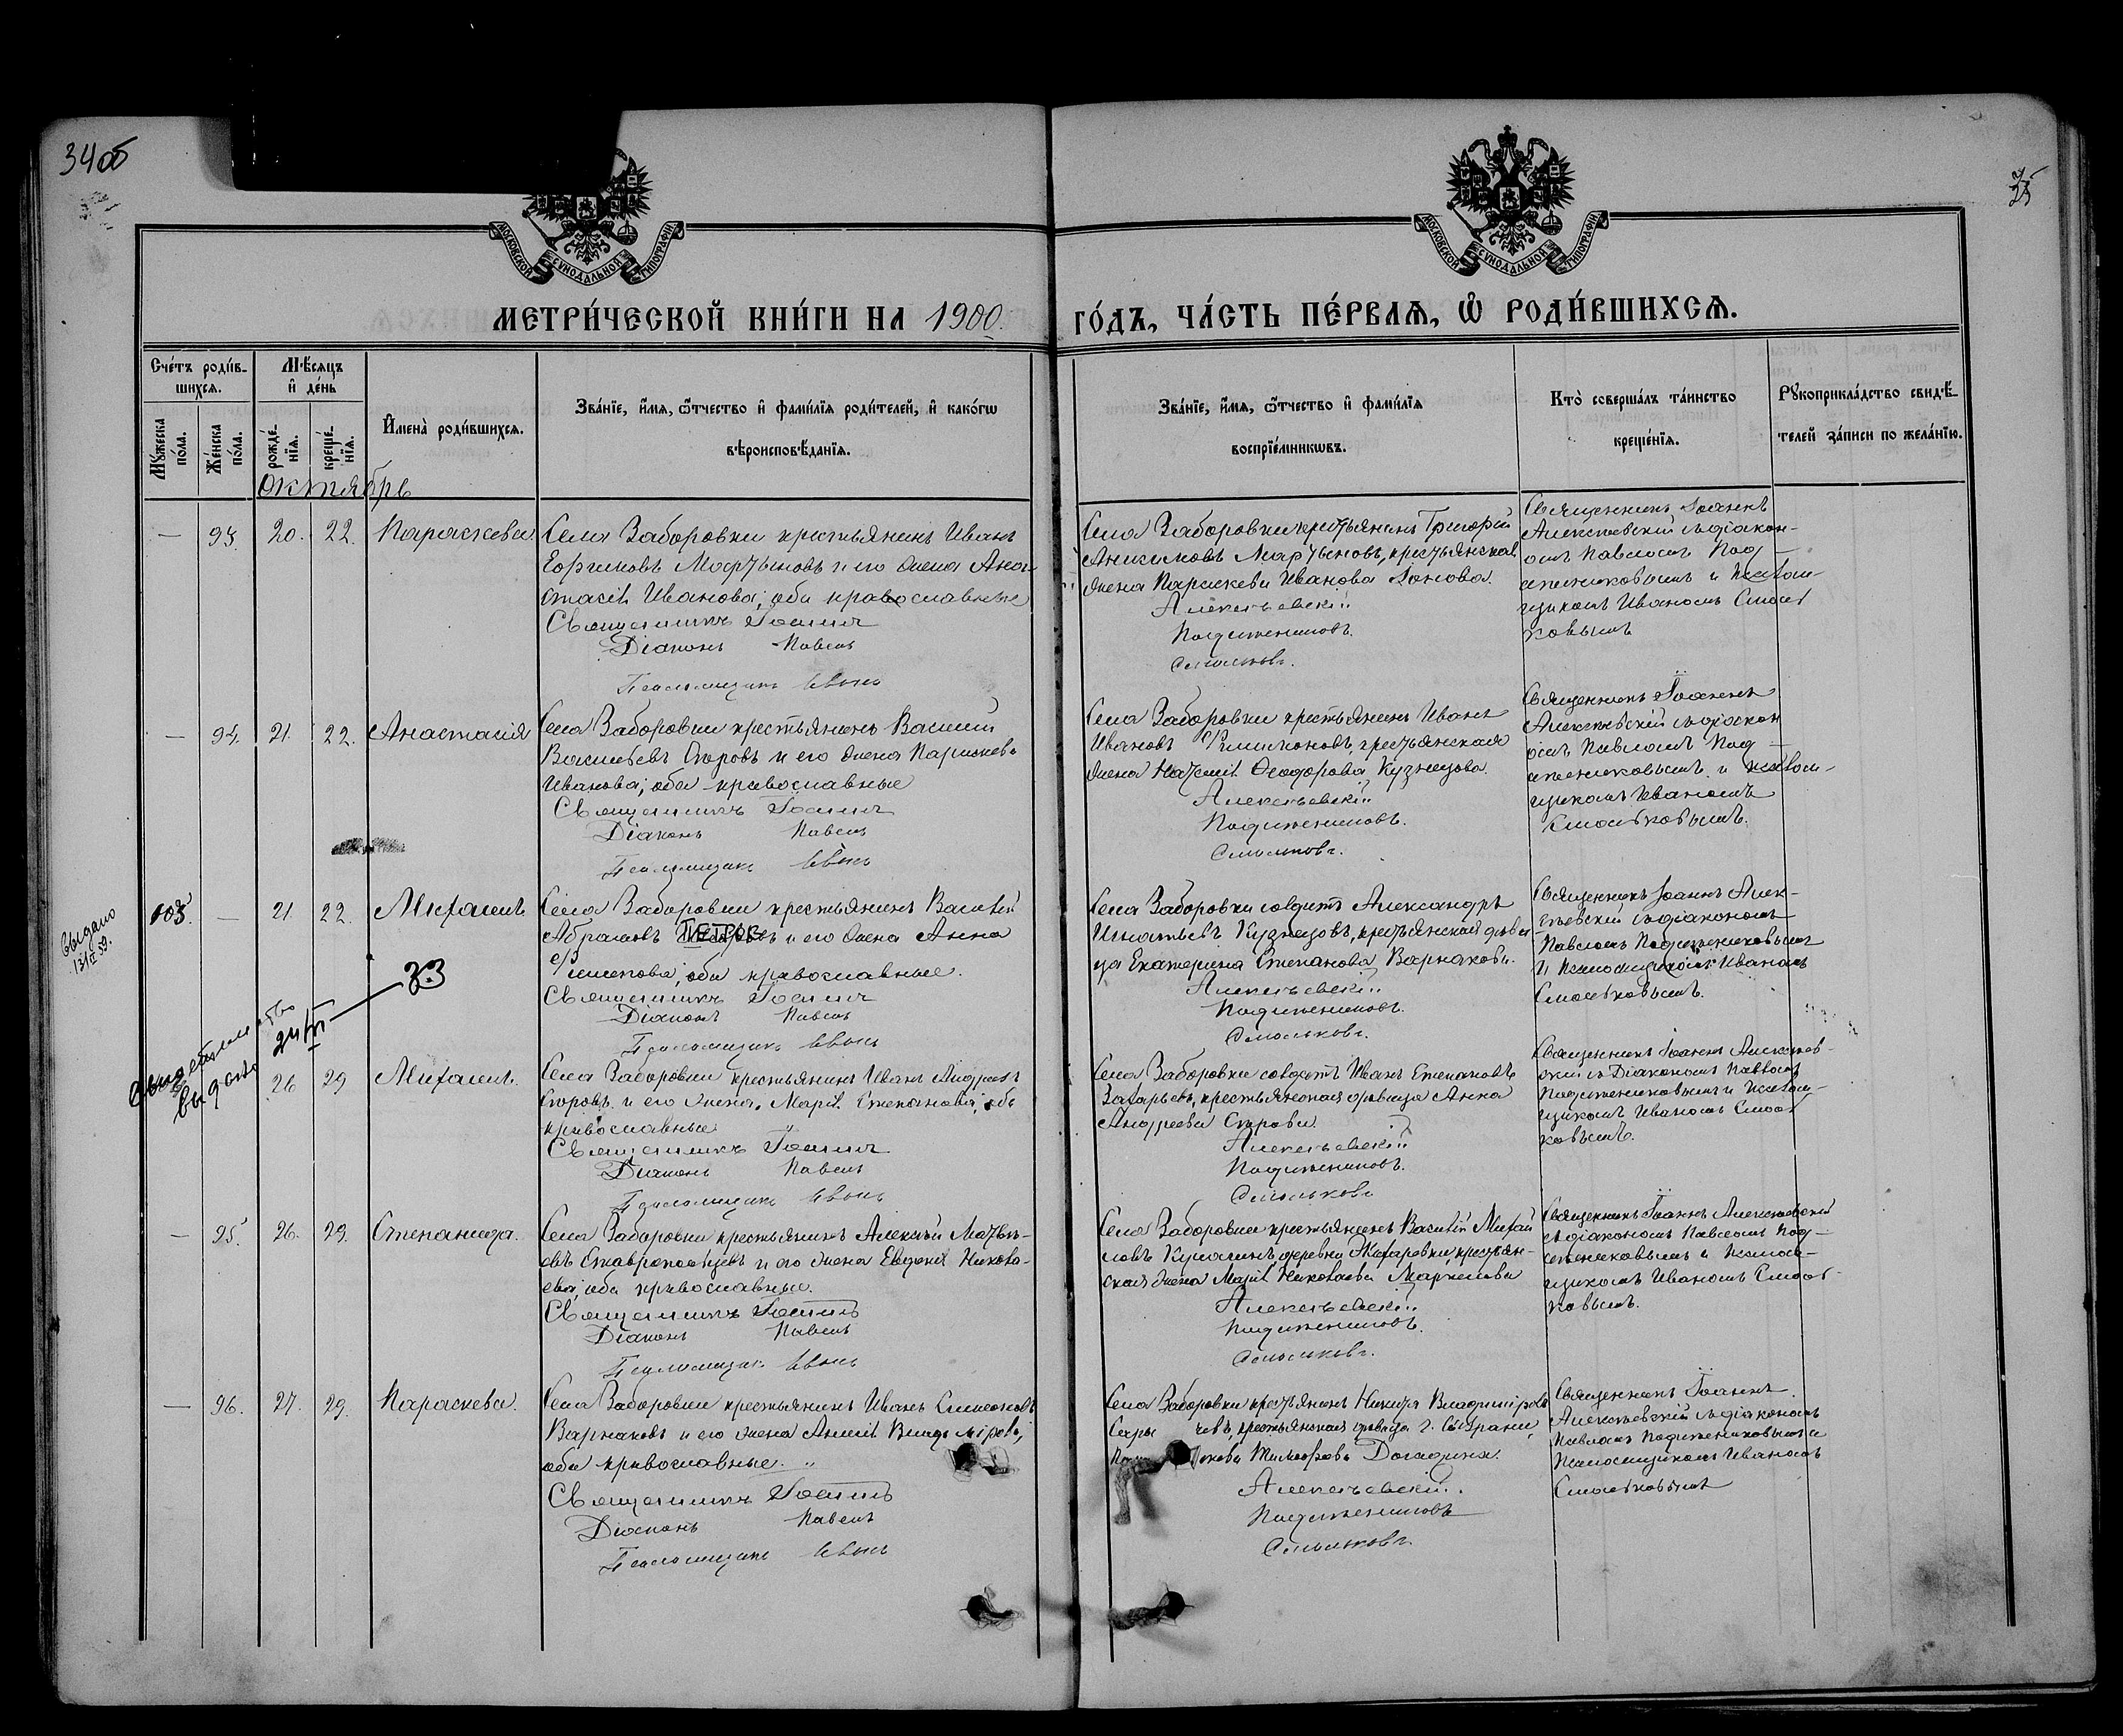 34 об
35
МОСКОВСКОЙ СѴНОДАЛЬНОЙ ТИПОГРАФІИ
МОСКОВСКОЙ СѴНОДАЛЬНОЙ ТИПОГРАФІИ
МЕТРИ́ЧЕСКОЙ КНИ́ГИ НА 1900.
ГО́ДЪ, ЧА́СТЬ ПЕ́РВАѦ, Ѡ҆ РОДИ́ВШИХСѦ.
Сче́тъ роди́в-
шихсѧ.
Мꙋ́жеска
по́ла.
Же́нска
по́ла.
Мѣ́сѧцъ
и҆ де́нь
рожде́-
нїѧ.
креще́-
нїѧ.
И҆мена̀ роди́вшихсѧ.
Зва́нїе, и҆́мѧ, ѻ҆́тчество и҆ фами́лїѧ роди́телей, и҆ како́гѡ
вѣроисповѣ́данїѧ.
Зва́нїе, и҆́мѧ, ѻ҆́тчество и҆ фами́лїѧ
воспрїе́мникѡвъ.
Кто̀ соверша́лъ та́инство
креще́нїѧ.
Рꙋкоприкла́дство свидѣ́-
телей за́писи по жела́нїю.
Октябрь
— 93. 20. 22. Параскева
Села Заборовки крестьянинъ Иванъ
Мартыновъ и его жена Ана-
стасія Иванова; оба православные
Священникъ Іоаннъ
Діаконъ Павелъ
Псаломщикъ Иванъ
Села Заборовки крестьянинъ Григорій
Анисимовъ Мартыновъ, крестьянская
жена Параскева Иванова
Алексѣевскій
Подъяченковъ
Смольковъ.
Священникъ Іоаннъ
Алексѣевскій съ діакон-
омъ Павломъ
и Псалом-
щикомъ Иваномъ Смоль-
ковымъ
— 94. 21. 22. Анастасія
Села Заборовки крестьянинъ Василій
Васильевъ Егоровъ и его жена Параскева
Иванова; оба православные
Священникъ Іоаннъ
Діаконъ Павелъ
Псаломщикъ Иванъ
Села Заборовки крестьянинъ Иванъ
Ивановъ Филимоновъ, крестьянская
жена Наталія Ѳеодорова Кузнецова.
Алексѣевскій
Смольковъ.
Священникъ Іоаннъ
Алексѣевскій съ діакон
омъ Павломъ
и Псалом-
щикомъ Иваномъ
Смольковымъ.
выдано
103. — 21. 22. Михаилъ
Села Заборовки крестьянинъ Василій
Абрамовъ ПЕТРОВЪ и его жена Анна
оба православные.
Священникъ Іоаннъ
Діаконъ Павелъ
Псаломщикъ Иванъ
Села Заборовки солдатъ Александръ
Игнатьевъ Кузнецовъ, крестьянская дѣви
ца Екатерина Степанова Варнакова.
Алексѣевскій
Смольковъ.
Священникъ Іоаннъ Алек-
сѣевскій съ діакономъ
Павломъ
и Псаломщикомъ Иваномъ
Смольковымъ.
Свидетельство
выдано 33
26 29 Михаилъ.
Села Заборовки крестьянинъ Иванъ Андреевъ
Егоровъ и его жена Марія Степанова; оба
православные
Священникъ Іоаннъ
Діаконъ Павелъ
Псаломщикъ Иванъ
Села Заборовки солдатъ Иванъ Степановъ
Захарьевъ, крестьянская дѣвица Анна
Андреева Егорова
Алексѣевскій
Смольковъ
Священникъ Іоаннъ Алексѣев-
скій съ Діакономъ Павломъ
и Псалом-
щикомъ Иваномъ Смоль-
ковымъ.
— 95. 26. 29. Степанида.
Села Заборовки крестьянинъ Алексѣй Матвѣ-
евъ Ставропольцевъ и его жена Евдокія Никола-
ева; оба православные.
Священникъ Іоаннъ
Діаконъ Павелъ
Псаломщикъ Иванъ
Села Заборовки крестьянинъ Василій Михай
ловъ деревни крестьян-
ская жена Марія Николаева Маркелова
Алексѣевскій
Смольковъ.
Священникъ Іоаннъ Алексѣевскій
съ діакономъ Павломъ
и Псалом-
щикомъ Иваномъ Смоль-
ковымъ.
— 96. 27. 29. Параскева.
Села Заборовки крестьянинъ Иванъ Симеоновъ
Варнаковъ и его жена Владимірова,
оба православные.
Священникъ Іоаннъ
Діаконъ Павелъ
Псаломщикъ Иванъ
Села Заборовки крестьянинъ Никита Владиміровъ
крестьянская дѣвица г. Сызрани,
Алексѣевскій
Смольковъ
Священникъ Іоаннъ
Алексѣевскій съ діакономъ
Павломъ и
Псаломщикомъ Иваномъ
Смольковымъ